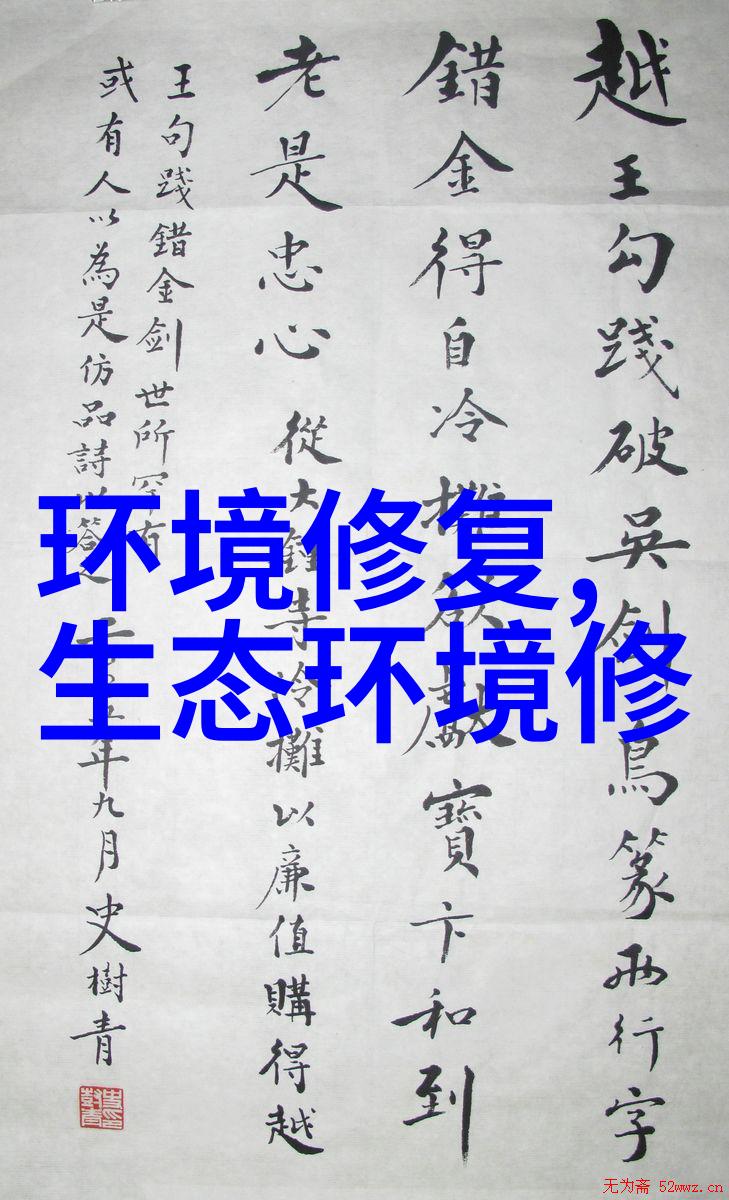 越王勾踐破吳劍鳥篆兩行字
錯金得自冷攤欲獻寶卞和到
老是忠心 從大鐘寺冷攤以廉值購得越
王句踐錯金劍世所罕有
或有人以為是仿品詩以答之 年九月史樹青
环境修复,
生态环境修
无为斋 52wwz.cn